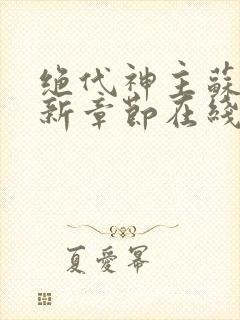 绝代神主蘇
新章節在綫
夏愛冪